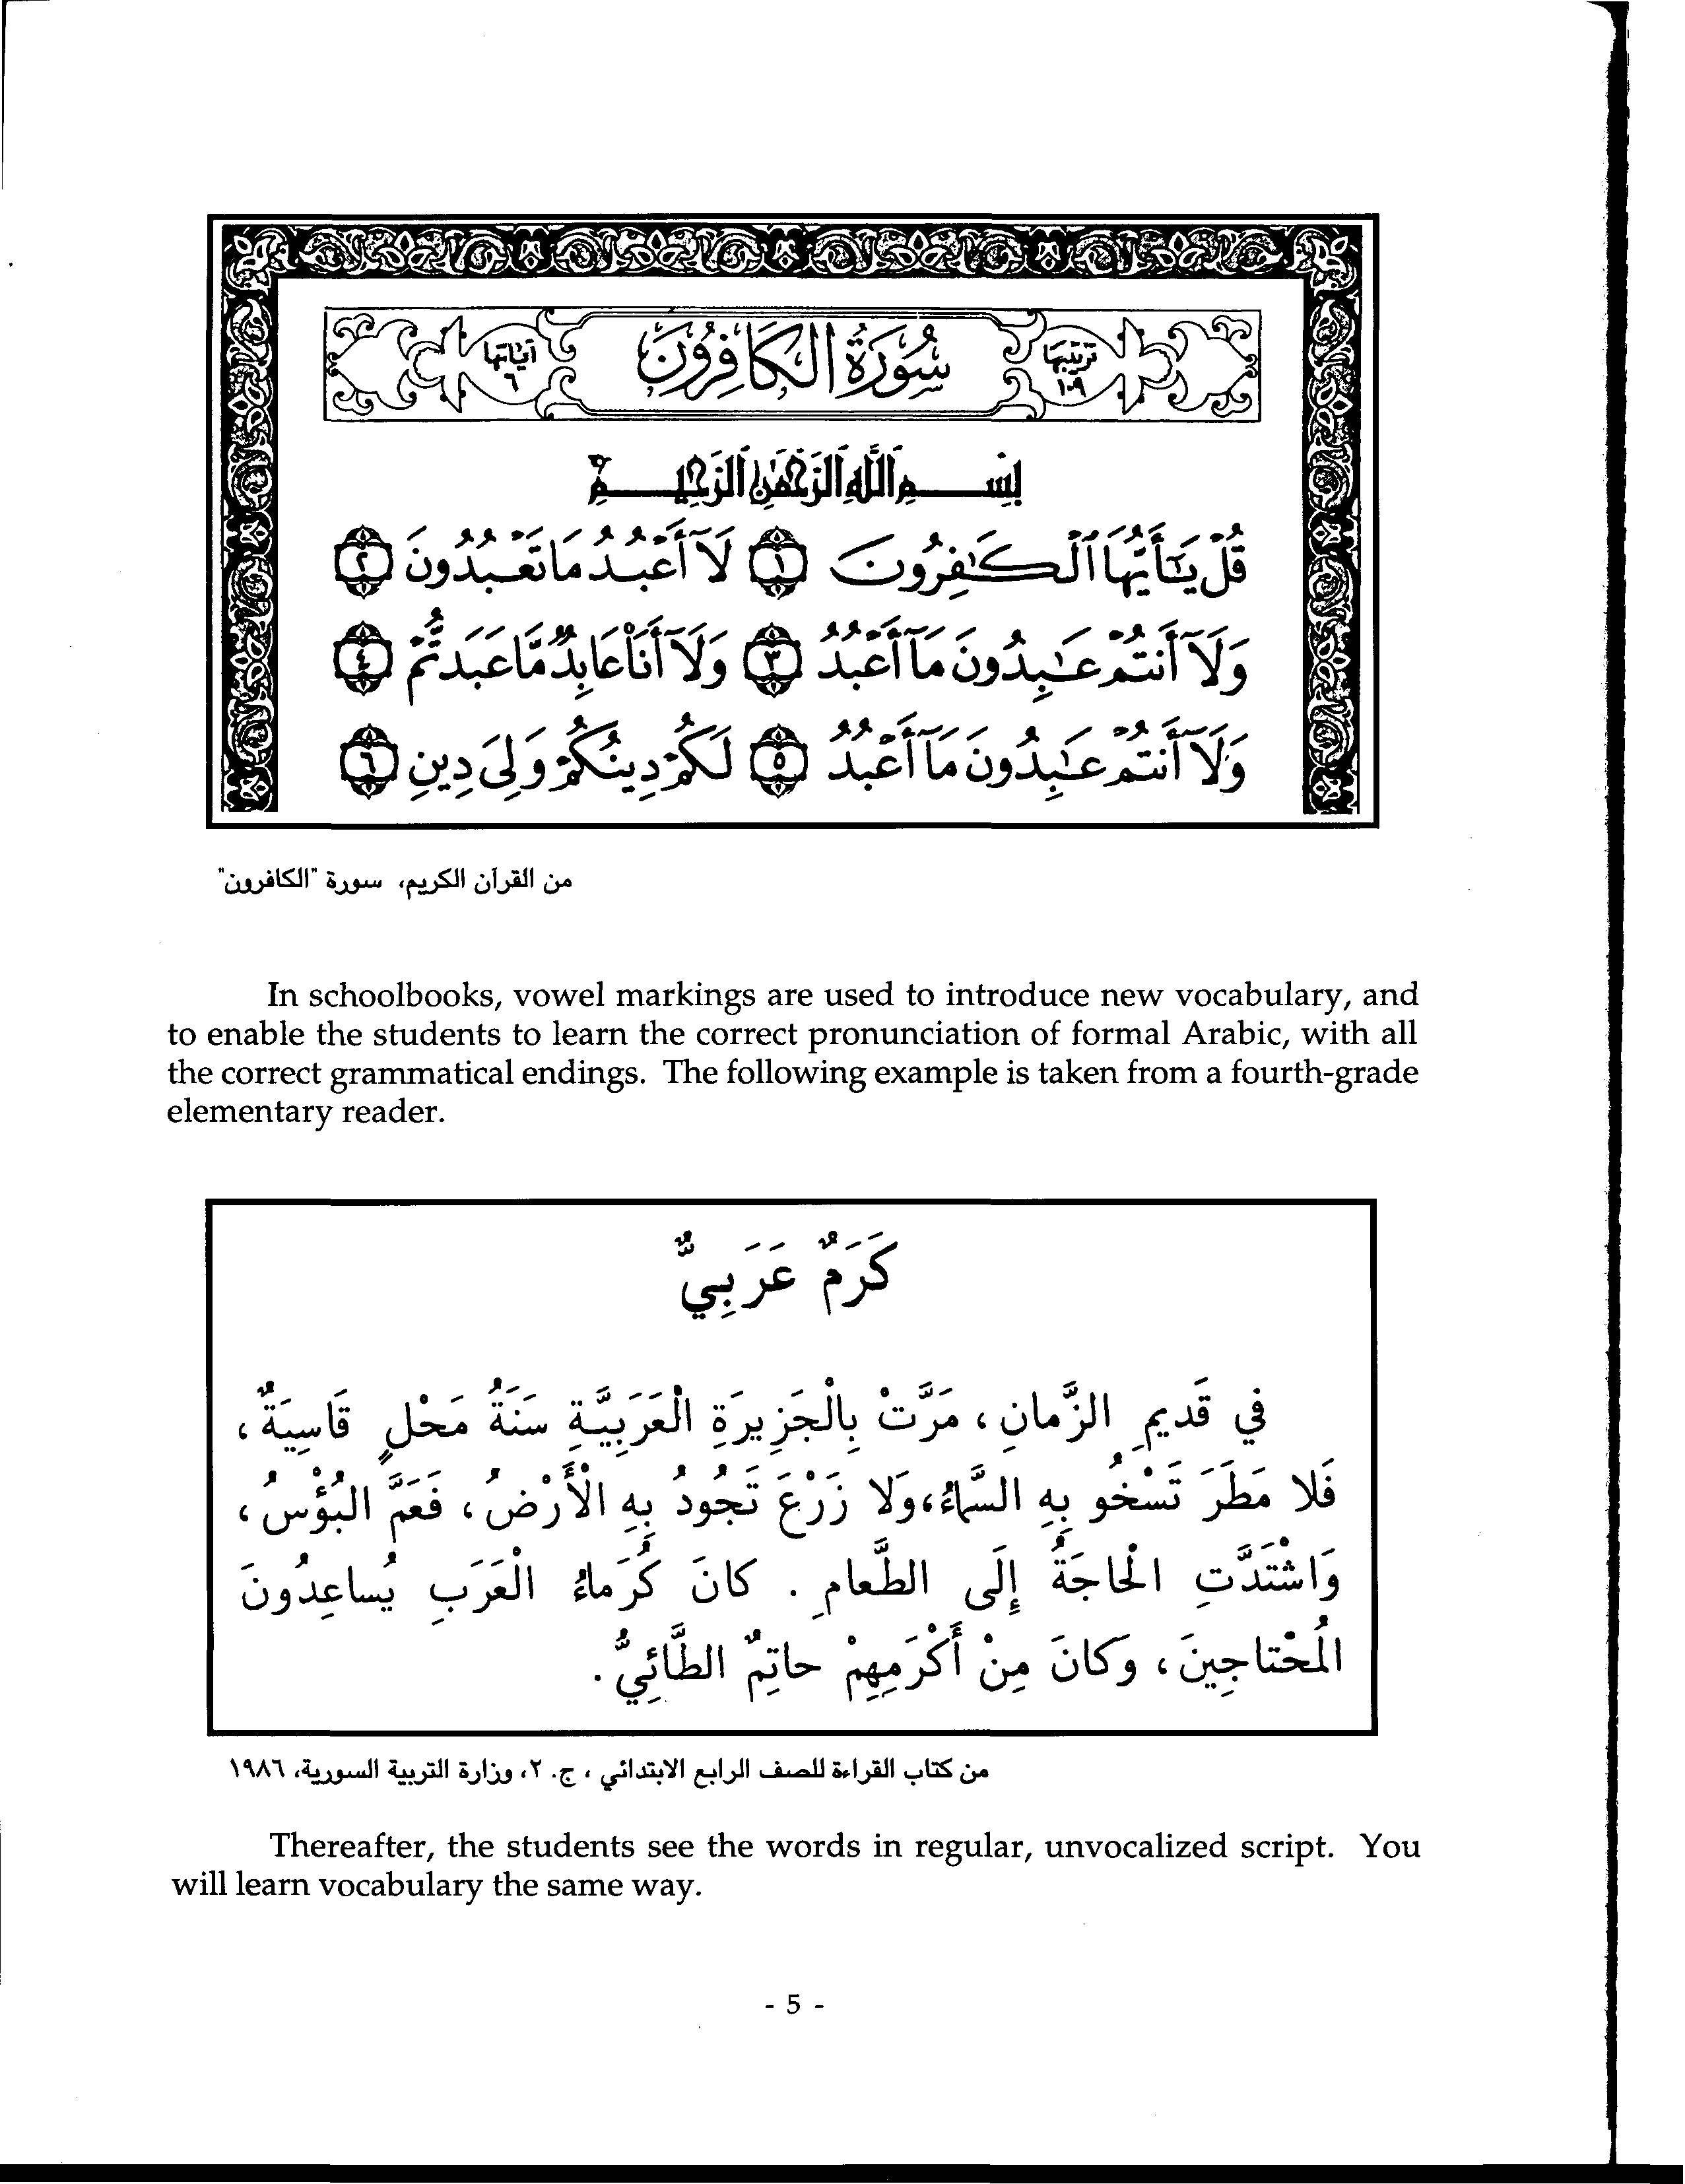 ترتيبها ١٠٩ سُورَةُ الكَافِرُونَ آياتها ٦
بِسْمِ اللَّهِ الرَّحْمَٰنِ الرَّحِيمِ
قُلْ يَٰٓأَيُّهَا ٱلْكَٰفِرُونَ ١ لَآ أَعْبُدُ مَا تَعْبُدُونَ ٢
وَلَآ أَنتُمْ عَٰبِدُونَ مَآ أَعْبُدُ ٣ وَلَآ أَنَا۠ عَابِدٌ مَّا عَبَدتُّمْ ٤
وَلَآ أَنتُمْ عَٰبِدُونَ مَآ أَعْبُدُ ٥ لَكُمْ دِينُكُمْ وَلِىَ دِينِ ٦
من القرآن الكريم، سورة "الكافرون"
In schoolbooks, vowel markings are used to introduce new vocabulary, and
to enable the students to learn the correct pronunciation of formal Arabic, with all
the correct grammatical endings. The following example is taken from a fourth-grade
elementary reader.
كَرَمٌ عَرَبِيٌّ
في قَديمِ الزَّمانِ، مَرَّتْ بِالْجَزِيرَةِ الْعَرَبِيَّةِ سَنَةُ مَحْلٍ قَاسِيَةٌ،
فَلا مَطَرَ تَسْخُو بِهِ السَّماءُ، وَلا زَرْعَ تَجُودُ بِهِ الْأَرْضُ، فَعَمَّ البُؤْسُ،
وَاشْتَدَّتِ الْحاجَةُ إِلَى الطَّعامِ. كانَ كُرَماءُ الْعَرَبِ يُساعِدُونَ
الْمُحْتاجِينَ، وَكانَ مِنْ أَكْرَمِهِمْ حاتِمٌ الطَّائِيُّ.
من كتاب القراءة للصف الرابع الابتدائي، ج. ٢، وزارة التربية السورية، ١٩٨٦
Thereafter, the students see the words in regular, unvocalized script. You
will learn vocabulary the same way.
- 5 -